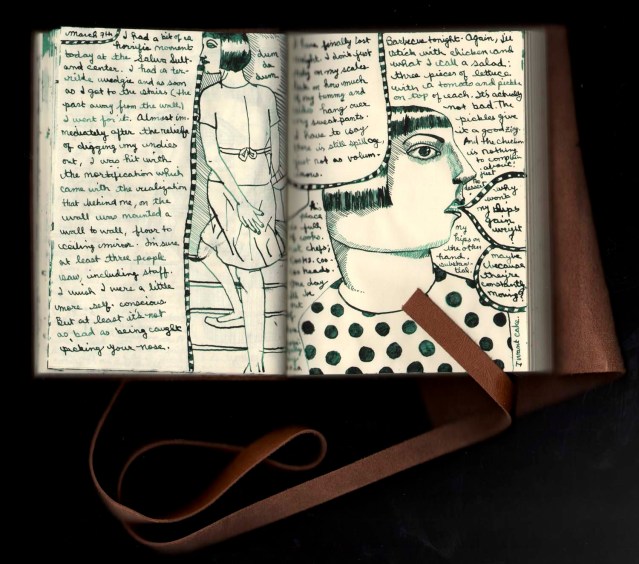 March 7th, I had a bit of a
horrific moment
today at the salvo suit-
and center. I had a ter-
rible wedgie and as soon
as I got to the stairs (the
part away from the wall)
I went for it. Almost im-
mediately after the relief
of digging my undies
out, I was hit with
the mortification which
came with the realization
that behind me, on the
wall was mounted a
wall to wall, floor to
ceiling mirror. I'm sure
at least three people
saw, including staff.
I wish I were a little
more self conscious.
But at least it's not
as bad as being caught
picking your nose.
dum
da
dum
I have finally lost
weight. I don't just
on my scales
how much
my tummy and
hang over
my sweatpants.
I have to say
there is still spillage,
just not as volum-
inous.
place
full
chefs;
heads.
day
Barbecue tonight. Again, I'll
stick with chicken and
what I call a salad:
three pieces of lettuce
with a tomato and pickle
on top of each. It's actually
not bad. The
pickles give
it a good zip.
And the chicken
is nothing
to complain
about,
just
dessert.
why
won't
my lips
gain
weight
my
hips on
the other
hand.
substan-
tial.
maybe
because
they're
constantly
moving?
I want cake.